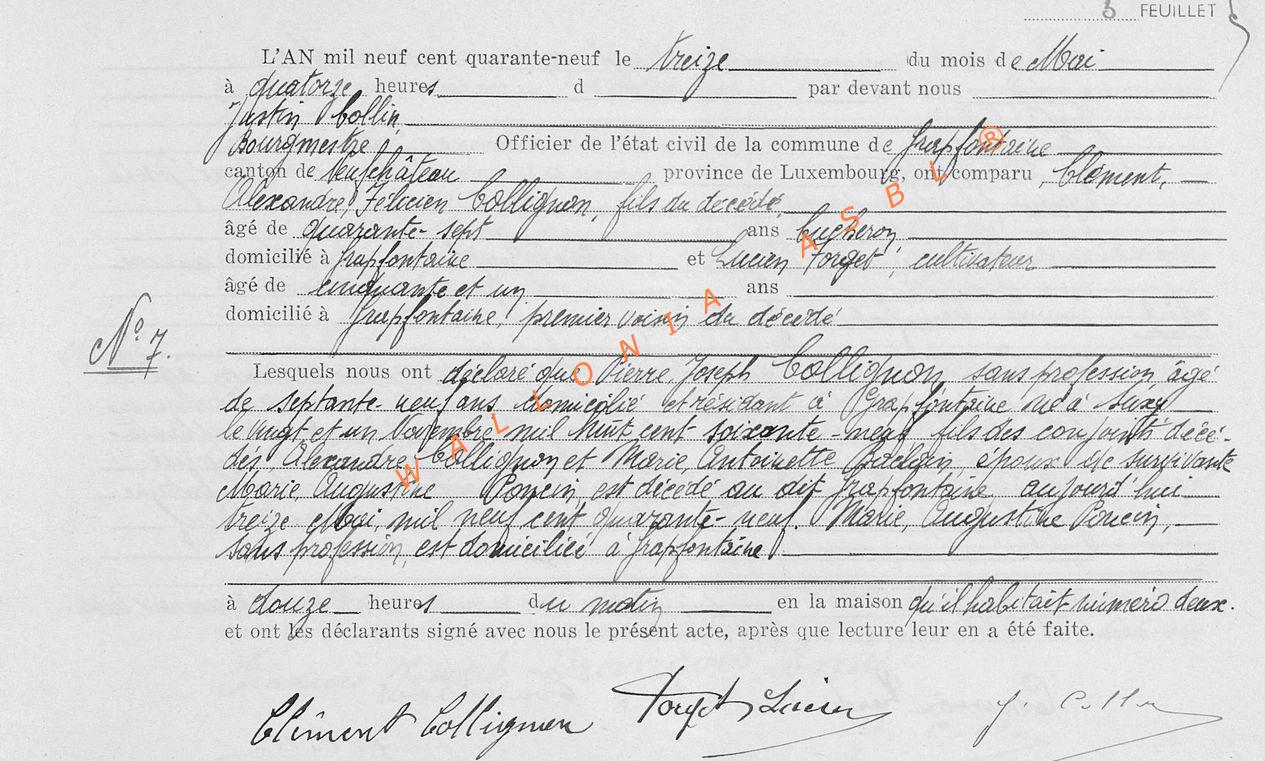 5 FEUILLET
L'AN mil neuf cent quarante-neuf le treize du mois de Mai
à quatorze heures d par devant nous
Justin Collin,
Bourgmestre Officier de l'état civil de la commune de Grapfontaine
canton de Neufchâteau province de Luxembourg, ont comparu Clément,
Alexandre, Félicien Collignon, fils du décédé,
âgé de quarante-sept ans bucheron,
domicilié à Grapfontaine et Lucien Forget, cultivateur
âgé de cinquante et un ans
domicilié à Grapfontaine, premier voisin du décédé
N° 7.
Lesquels nous ont déclaré que Pierre, Joseph Collignon, sans profession, âgé
de septante-neuf ans domicilié et résidant à Grapfontaine né à Suxy
le vingt et un Novembre mil huit cent soixante-neuf fils des conjoints décé-
dés, Alexandre Collignon et Marie, Antoinette époux de survivante
Marie, Augustine Poncin, est décédé au dit Grapfontaine aujourd'hui
treize Mai, mil neuf cent quarante-neuf. Marie, Augustine Poncin,
sans profession, est domiciliée à Grapfontaine
à douze heures du matin en la maison qu'il habitait numéro deux.
et ont les déclarants signé avec nous le présent acte, après que lecture leur en a été faite.
Clément Collignon Forget Lucien J. Collin
WALLONIA ASBL ®